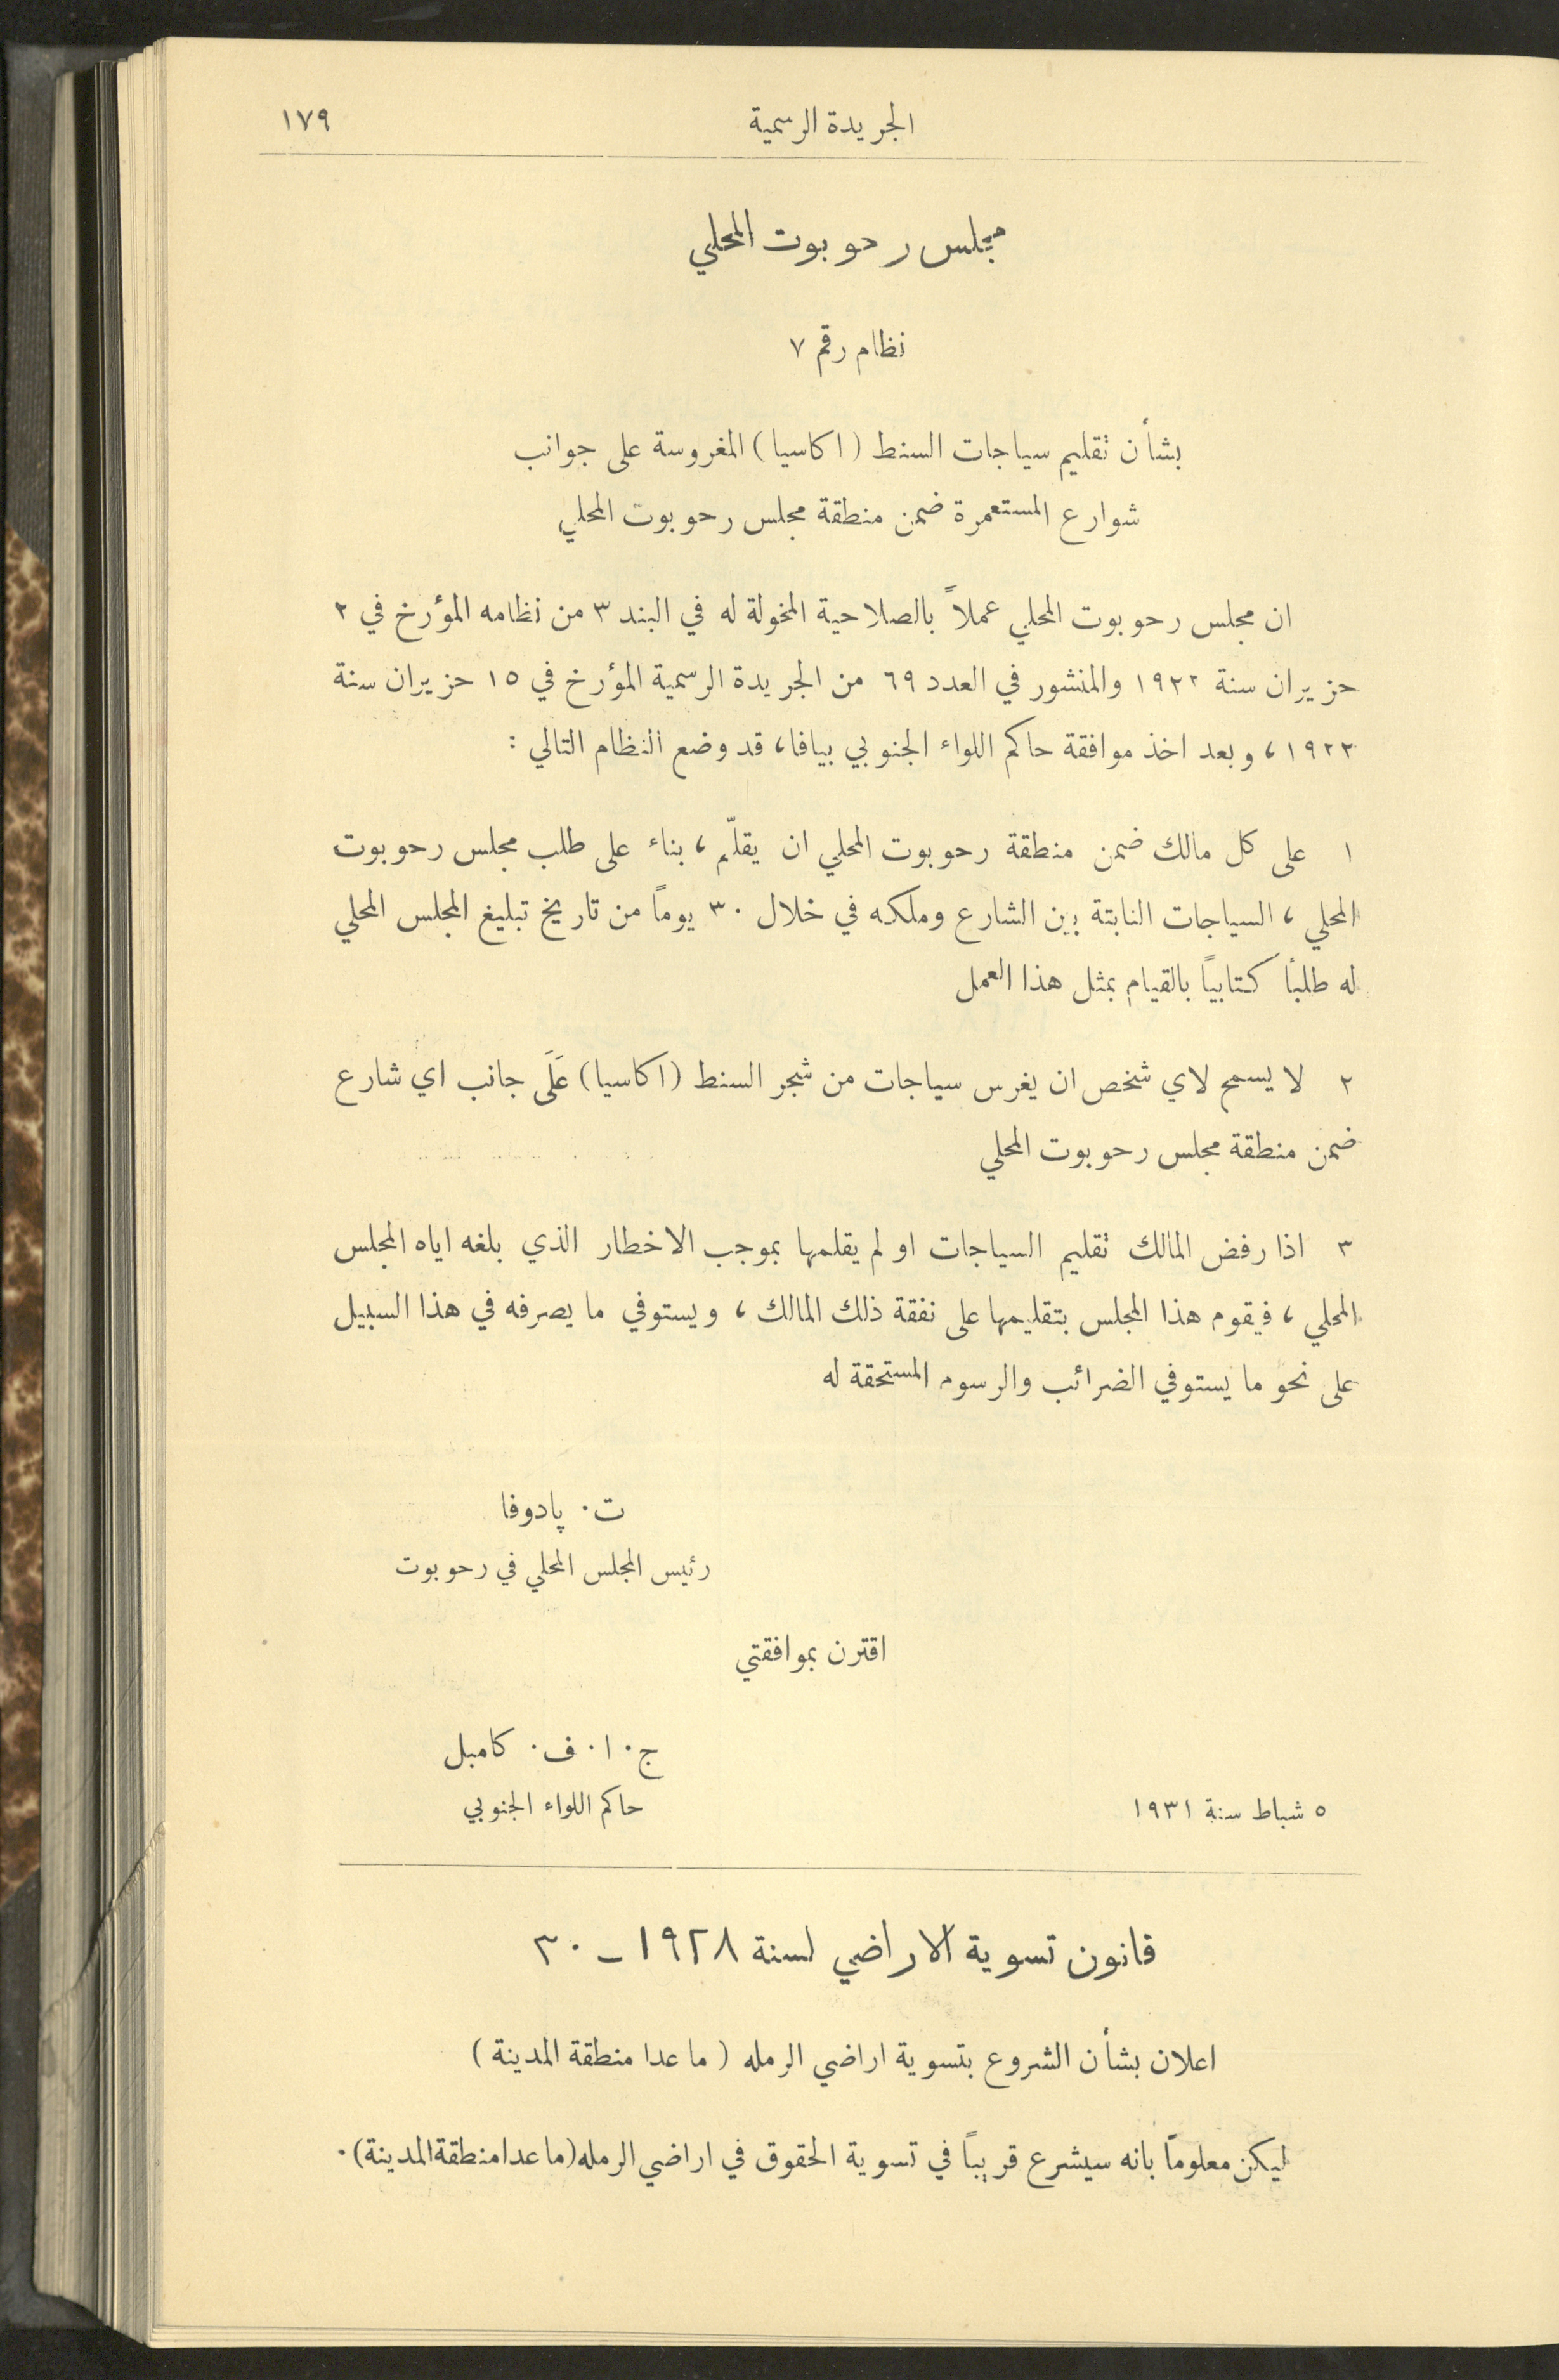 الجريدة الرسمية ١٧٩
مجلس رحوبوت المحلي
نظام رقم ٧
بشأن تقليم سياجات السنط (اكاسيا) المغروسة على جوانب
شوارع المستعمرة ضمن منطقة مجلس رحوبوت المحلي
ان مجلس رحوبوت المحلي عملاً بالصلاحية المخولة له في البند ٣ من نظامه المؤرخ في ٢
حزيران سنة ١٩٢٢ والمنشور في العدد ٦٩ من الجريدة الرسمية المؤرخ في ١٥ حزيران سنة
١٩٢٢، وبعد اخذ موافقة حاكم اللواء الجنوبي بيافا، قد وضع النظام التالي :
١ على كل مالك ضمن منطقة رحوبوت المحلي ان يقلّم، بناء على طلب مجلس رحوبوت
المحلي، السياجات النابتة بين الشارع وملكه في خلال ٣٠ يوماً من تاريخ تبليغ المجلس المحلي
له طلباً كتابياً بالقيام بمثل هذا العمل
٢ لا يسمح لاي شخص ان يغرس سياجات من شجر السنط (اكاسيا) عَلَى جانب اي شارع
ضمن منطقة مجلس رحوبوت المحلي
٣ اذا رفض المالك تقليم السياجات او لم يقلمها بموجب الاخطار الذي بلغه اياه المجلس
المحلي، فيقوم هذا المجلس بتقليمها على نفقة ذلك المالك، ويستوفي ما يصرفه في هذا السبيل
على نحو ما يستوفي الضرائب والرسوم المستحقة له
ت. پادوفا
رئيس المجلس المحلي في رحوبوت
اقترن بموافقتي
ج. ا. ف. كامبل
٥ شباط سنة ١٩٣١ حاكم اللواء الجنوبي
قانون تسوية الاراضي لسنة ١٩٢٨ – ٣٠
اعلان بشأن الشروع بتسوية اراضي الرمله ( ما عدا منطقة المدينة )
ليكن معلوماً بانه سيشرع قريباً في تسوية الحقوق في اراضي الرمله (ما عدا منطقة المدينة).